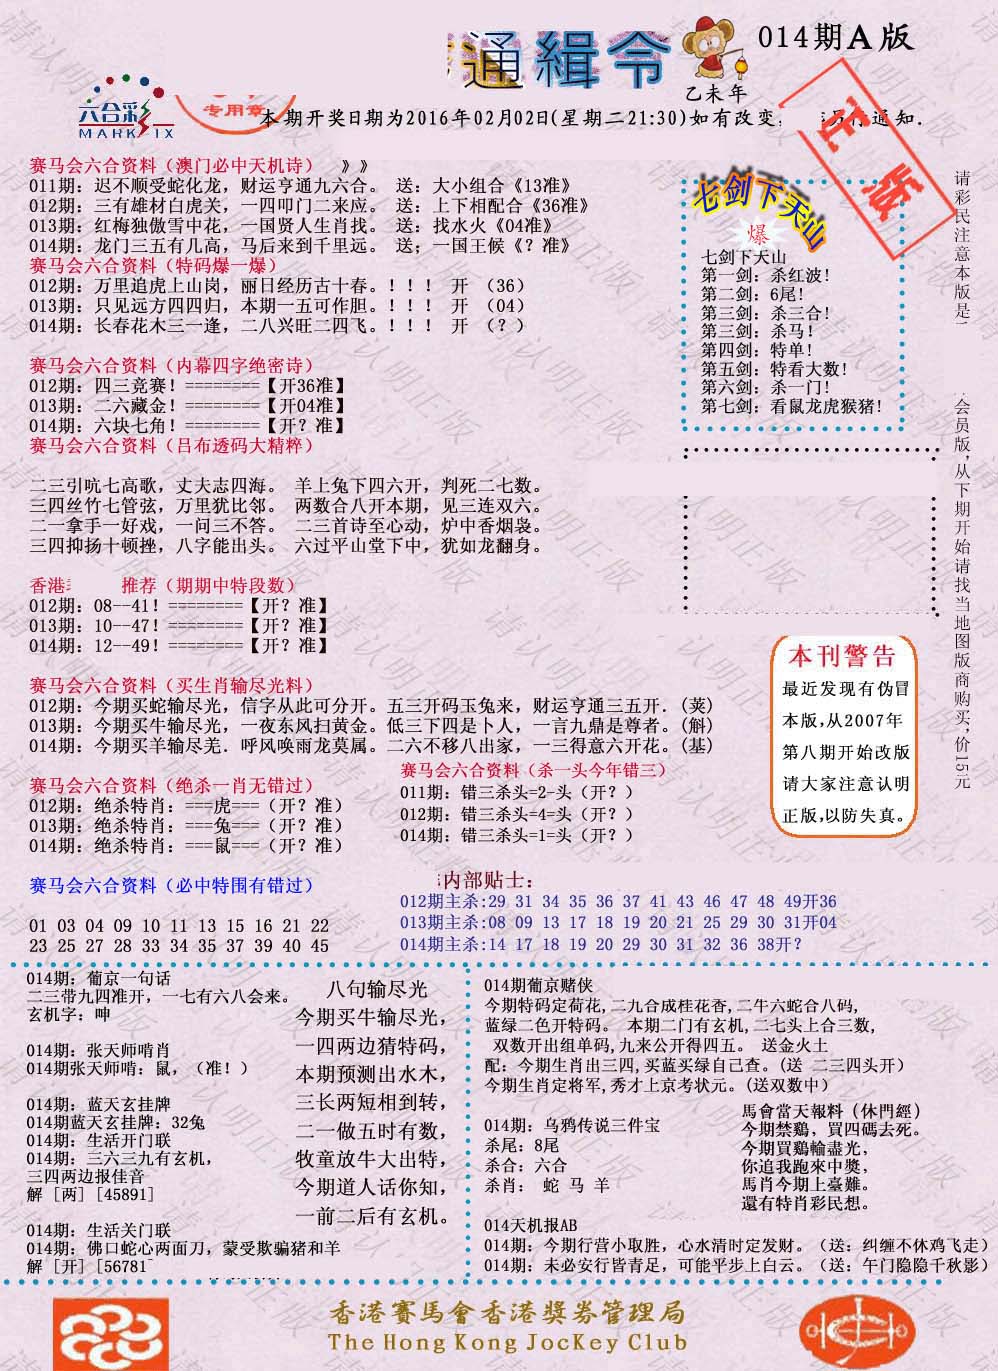 通緝令
014期A版
乙未年
六合彩
MARK SIX
专用章
正版
本期开奖日期为2016年02月02日(星期二21:30)如有改变,
通知.
赛马会六合资料（澳门必中天机诗） 》》
011期: 迟不顺受蛇化龙，财运亨通九六合。 送: 大小组合《13准》
012期: 三有雄材白虎关，一四叩门二来应。 送: 上下相配合《36准》
013期: 红梅独傲雪中花，一国贤人生肖找。 送: 找水火《04准》
014期: 龙门三五有几高，马后来到千里远。 送; 一国王候《? 准》
赛马会六合资料（特码爆一爆）
012期: 万里追虎上山岗，丽日经历古十春。! ! ! 开 （36）
013期: 只见远方四四归，本期一五可作胆。! ! ! 开 （04）
014期: 长春花木三一逢，二八兴旺二四飞。! ! ! 开 （? ）
赛马会六合资料（内幕四字绝密诗）
012期: 四三竞赛! ========【开36准】
013期: 二六藏金! ========【开04准】
014期: 六块七角! ========【开? 准】
赛马会六合资料（吕布透码大精粹）
二三引吭七高歌，丈夫志四海。 羊上兔下四六开，判死二七数。
三四丝竹七管弦，万里犹比邻。 两数合八开本期，见三连双六。
二一拿手一好戏，一问三不答。 二三首诗至心动，炉中香烟袅。
三四抑扬十顿挫，八字能出头。 六过平山堂下中，犹如龙翻身。
香港 推荐（期期中特段数）
012期: 08--41! ========【开? 准】
013期: 10--47! ========【开? 准】
014期: 12--49! ========【开? 准】
赛马会六合资料（买生肖输尽光料）
012期: 今期买蛇输尽光，信字从此可分开。五三开码玉兔来，财运亨通三五开. (荚)
013期: 今期买牛输尽光，一夜东风扫黄金。低三下四是卜人，一言九鼎是尊者。(斛)
014期: 今期买羊输尽羌. 呼风唤雨龙莫属。二六不移八出家，一三得意六开花。(基)
赛马会六合资料（绝杀一肖无错过）
012期: 绝杀特肖: ===虎===（开? 准）
013期: 绝杀特肖: ===兔===（开? 准）
014期: 绝杀特肖: ===鼠===（开? 准）
赛马会六合资料（杀一头今年错三）
011期: 错三杀头=2-头（开? ）
012期: 错三杀头=4=头（开? ）
014期: 错三杀头=1=头（开? ）
赛马会六合资料（必中特围有错过）
01 03 04 09 10 11 13 15 16 21 22
23 25 27 28 33 34 35 37 39 40 45
内部贴士:
012期主杀:29 31 34 35 36 37 41 43 46 47 48 49开36
013期主杀:08 09 13 17 18 19 20 21 25 29 30 31开04
014期主杀:14 17 18 19 20 29 30 31 32 36 38开?
七剑下天山
爆
七剑下天山
第一剑: 杀红波!
第二剑: 6尾!
第三剑: 杀三合!
第三剑: 杀马!
第四剑: 特单!
第五剑: 特看大数!
第六剑: 杀一门!
第七剑: 看鼠龙虎猴猪!
请彩民注意本版是
会员版,从下期开始请找当地图版商购买,价15元
本刊警告
最近发现有伪冒
本版,从2007年
第八期开始改版
请大家注意认明
正版,以防失真。
014期: 葡京一句话
二三带九四准开，一七有六八会来。
玄机字: 呻
014期: 张天师啃肖
014期张天师啃: 鼠，（准! ）
014期: 蓝天玄挂牌
014期蓝天玄挂牌: 32兔
014期: 生活开门联
014期: 三六三九有玄机，
三四两边报佳音
解 [两] [45891]
014期: 生活关门联
014期: 佛口蛇心两面刀，蒙受欺骗猪和羊
解 [开] [56781
八句输尽光
今期买牛输尽光，
一四两边猜特码，
本期预测出水木，
三长两短相到转，
二一做五时有数，
牧童放牛大出特，
今期道人话你知，
一前二后有玄机。
014期葡京赌侠
今期特码定荷花,二九合成桂花香,二牛六蛇合八码,
蓝绿二色开特码。 本期二门有玄机,二七头上合三数,
双数开出组单码,九来公开得四五。 送金火土
配: 今期生肖出三四,买蓝买绿自己查。(送 二三四头开)
今期生肖定将军,秀才上京考状元。(送双数中)
014期: 乌鸦传说三件宝
杀尾: 8尾
杀合: 六合
杀肖: 蛇 马 羊
馬會當天報料（休門經）
今期禁鷄，買四碼去死。
今期買鷄輸盡光，
你追我跑來中獎，
馬肖今期上臺難。
還有特肖彩民想。
014天机报AB
014期: 今期行营小取胜，心水清时定发财。（送: 纠缠不休鸡飞走）
014期: 未必安行皆青足，可能平步上白云。（送: 午门隐隐千秋影）
香港賽馬會香港獎券管理局
The Hong Kong Jockey Club